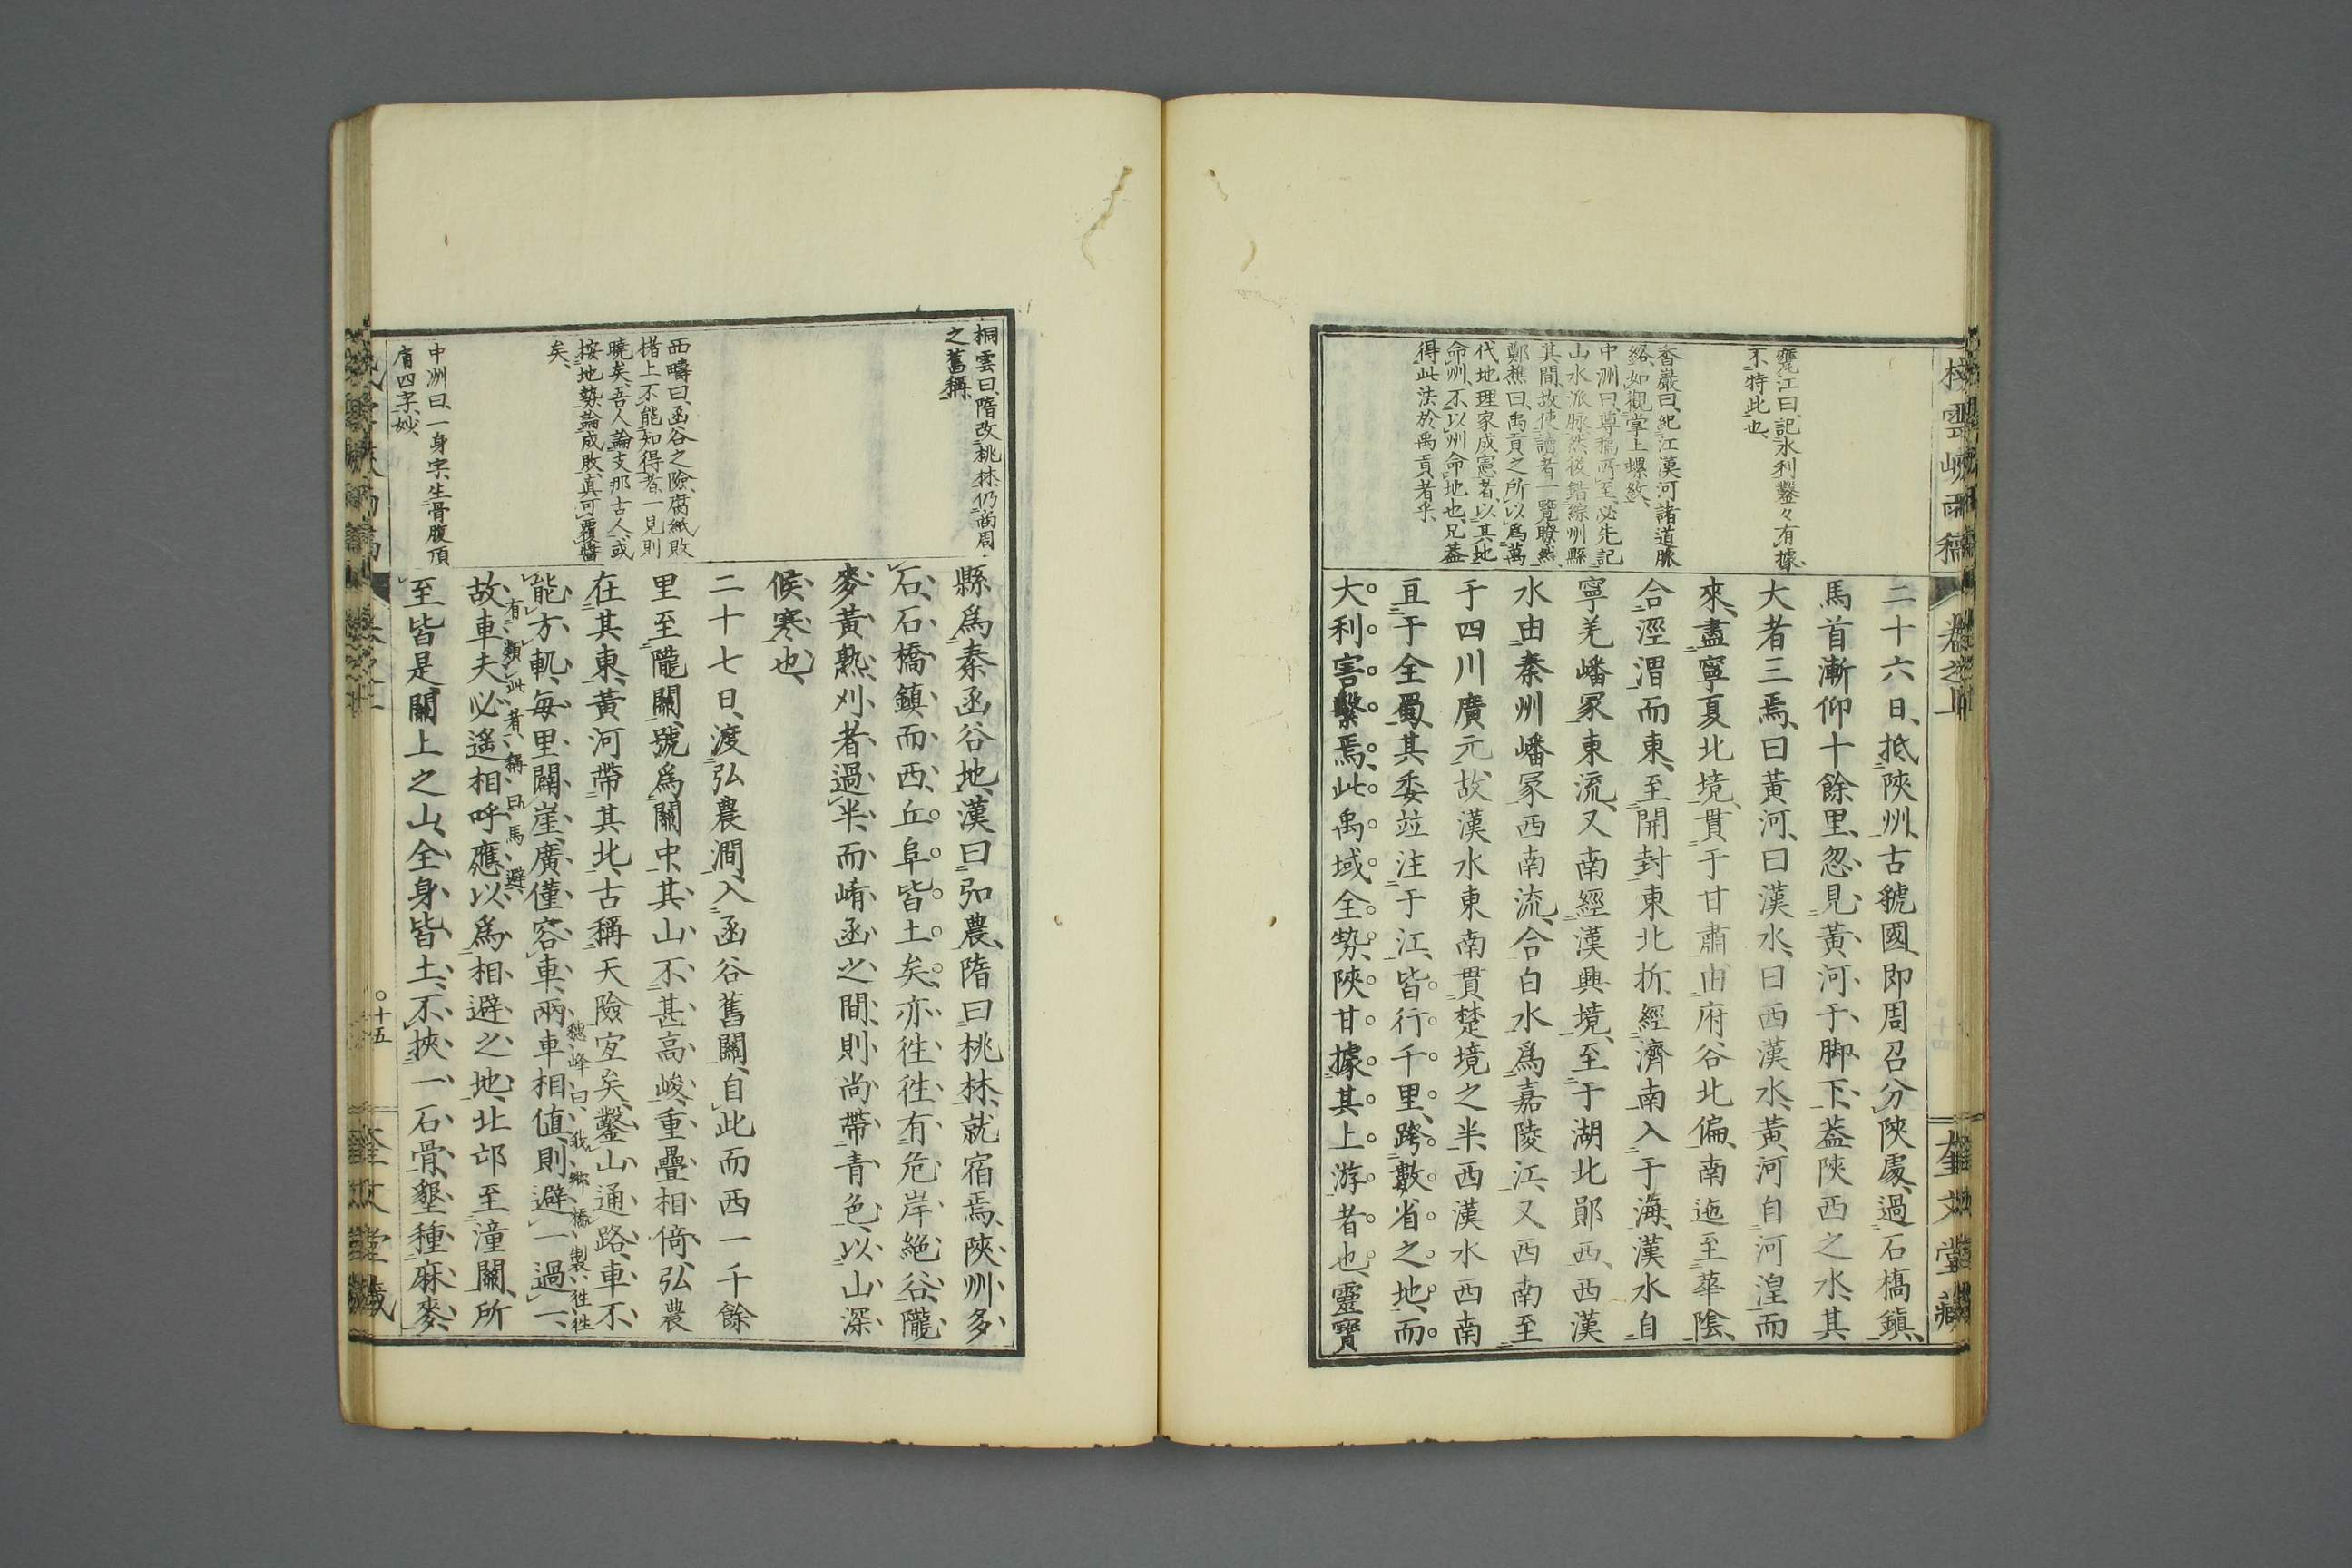 棧雲峽雨稿
卷之上
奎文堂藏
甕江曰、記水利鑿々有據、
不特此也、
香巖曰、紀江漢河諸道脈
絡、如觀掌上螺紋、
中洲曰、尊稿所至、必先記
山水派脉、然後錯綜州縣
其間、故使讀者一覽瞭然、
鄭樵曰、禹貢之所以爲萬
代地理家成憲者、以其地
命州、不以州命地也、兄葢
得此法於禹貢者乎、
二十六日、抵陝州、古虢國、即周召分陝處、過石橋鎭、
馬首漸仰十餘里、忽見黃河于脚下、葢陝西之水、其
大者三焉、曰黃河、曰漢水、曰西漢水、黃河自河湟而
來、盡寧夏北境、貫于甘肅、由府谷北偏、南迤至華陰、
合涇渭而東、至開封東北折、經濟南入于海、漢水自
寧羌嶓冢東流、又南經漢興境、至于湖北鄖西、西漢
水由秦州嶓冢西南流、合白水爲嘉陵江、又西南至
于四川廣元、故漢水東南貫楚境之半、西漢水西南
亘于全蜀、其委竝注于江、皆行千里、跨數省之地、而
大利害繫焉、此禹域全勢、陝甘據其上游者也、靈寶
桐雲曰、隋改桃林、仍商周
之舊稱、
西疇曰、函谷之險、腐紙敗
楮上不能知得者、一見則
曉矣、吾人論支那古人、或
按地勢論成敗、眞可覆醬
矣、
中洲曰、一身字、生骨腹頂
膚四字、妙、
縣爲秦函谷地、漢曰弘農、隋曰桃林、就宿焉、陝州多
石、石橋鎭而西、丘阜皆土矣、亦徃徃有危岸絶谷、隴
麥黃熟、刈者過半、而崤函之間、則尚帶青色、以山深
候寒也、
二十七日、渡弘農澗、入函谷舊關、自此而西一千餘
里至隴關、號爲關中、其山不甚高峻、重疊相倚、弘農
在其東、黃河帶其北、古稱天險宜矣、鑿山通路、車不
穗峰曰、我鄉橋製、徃徃
能方軌、每里闢崖、廣僅容車、兩車相値、則避一過一、
有類此者、稱曰馬避、
故車夫必遙相呼應、以爲相避之地、北邙至潼關、所
至皆是關上之山、全身皆土、不挾一石骨、墾種麻麥、
十五
奎文堂藏